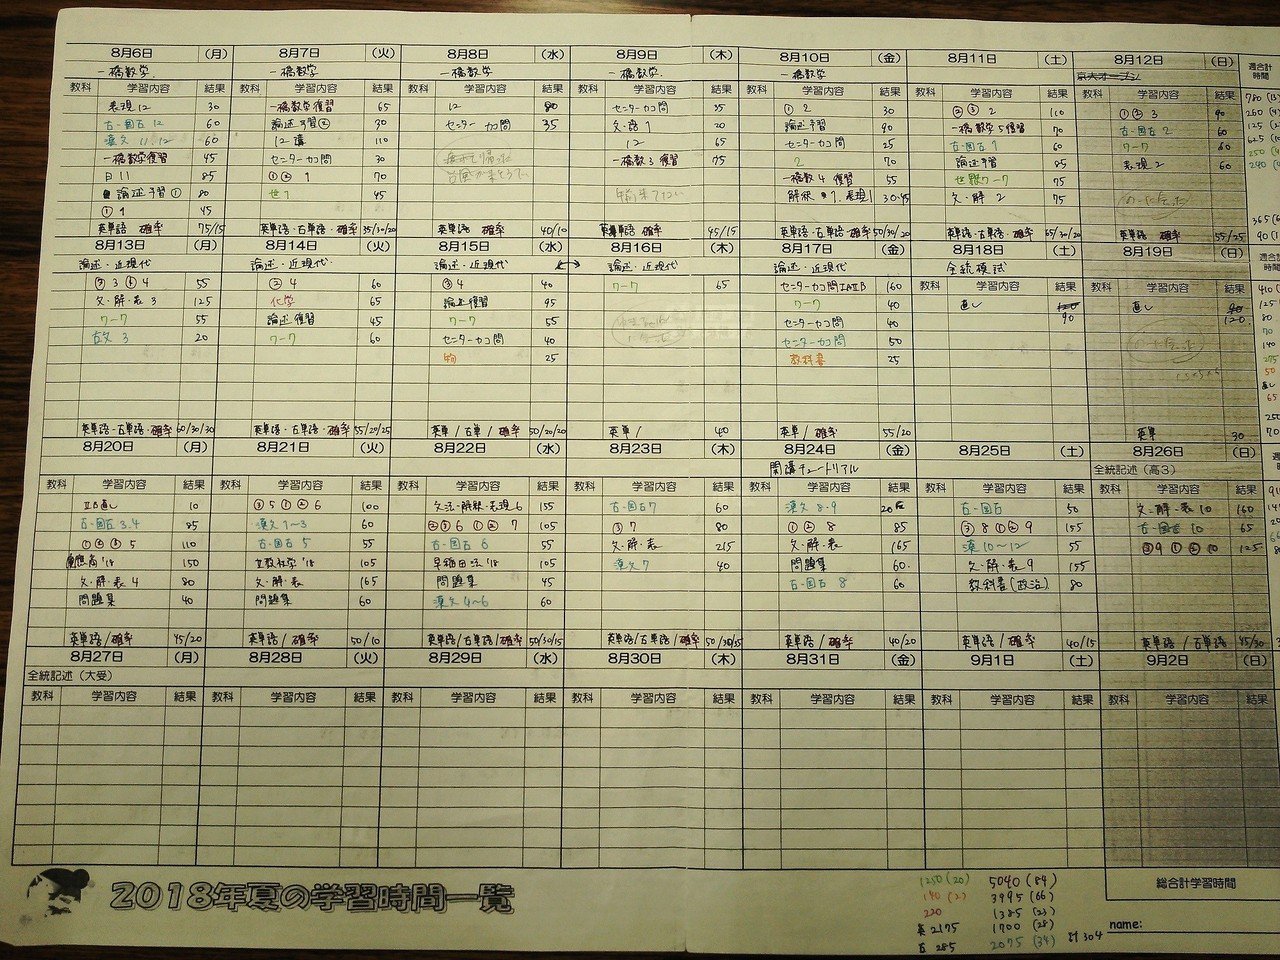 8月6日 (月) 8月7日 (火) 8月8日 (水) 8月9日 (木) 8月10日 (金) 8月11日 (土) 8月12日 (日) 週合計時間
一橋数学 一橋数学 一橋数学 一橋数学 一橋数学 京大オープン
教科 学習内容 結果 教科 学習内容 結果 教科 学習内容 結果 教科 学習内容 結果 教科 学習内容 結果 教科 学習内容 結果 教科 学習内容 結果
表現 12 30 一橋数学復習 65 12 80 センターカコ問 35 ① 2 30 ②③ 2 110 ①②3 90
古・国古 12 60 論述予習② 30 センターカコ問 35 文・語 1 20 論述予習 90 一橋数学5復習 70 古・国古 2 60
漢文 11.12 60 12 講 110 12 65 センターカコ問 25 古・国古 1 60 ワーク 60
一橋数学復習 45 センターカコ問 30 一橋数学3復習 75 2 70 論述予習 85 表現 2 60
日11 85 ①② 1 70 一橋数学4復習 55 世界ワーク 75
論述予習① 80 世 1 45 解釈 1. 表現 1 30・45 文・解 2 75
① 1 45
英単語 確率 75/15 英単語・古単語・確率 35/30/20 英単語 確率 40/10 英単語 確率 45/15 英単語・古単語・確率 50/30/20 英単語・古単語・確率 65/30/20 英単語 確率 55/25
8月13日 (月) 8月14日 (火) 8月15日 (水) 8月16日 (木) 8月17日 (金) 8月18日 (土) 8月19日 (日) 週合計時間
論述・近現代 論述・近現代 論述・近現代 ↔ 論述・近現代 論述・近現代 全統模試
教科 学習内容 結果 教科 学習内容 結果
② 3 ① 4 55 ② 4 60 ③ 4 40 ワーク 65 センターカコ問ⅠAⅡB 160 直し 120 直し 90
文・解・表 3 125 化学 65 論述復習 95 ワーク 40 90 120
ワーク 55 論述復習 45 ワーク 55 センターカコ問 40
古文 3 20 ワーク 60 センターカコ問 40 センターカコ問 50
物 25 教科書 25
英単語・古単語・確率 60/30/30 英単語・古単語・確率 55/20/25 英単/古単/確率 50/20/20 英単/ 40 英単/確率 55/20 英単 30
8月20日 (月) 8月21日 (火) 8月22日 (水) 8月23日 (木) 8月24日 (金) 8月25日 (土) 8月26日 (日) 週合計時間
開講チュートリアル 全統記述(高3)
教科 学習内容 結果 教科 学習内容 結果 教科 学習内容 結果 教科 学習内容 結果 教科 学習内容 結果 教科 学習内容 結果 教科 学習内容 結果
ⅡB直し 10 ③ 5 ①② 6 100 文法・解釈・表現 6 155 古・国古7 60 漢文 8・9 古・国古 50 文・解・表 10 160
古・国古 3.4 85 漢文 1〜3 60 ②③ 6 ①② 7 105 ③ 7 80 ①② 8 85 ③ 8 ①② 9 155 古・国古 10 65
①②③ 5 110 古・国古 5 55 古・国古 6 55 文・解・表 215 文・解・表 165 漢 10〜12 55 ③9 ①② 10 125
慶應商'18 150 立教社学'18 105 早稲田法'18 105 漢文 7 40 問題集 60 文・解・表 9 155
文・解・表 4 80 文・解・表 165 問題集 45 古・国古 8 60 教科書(政治) 80
問題集 40 問題集 60 漢文 4〜6 60
英単語/確率 45/20 英単語/確率 50/10 英単語/古単語/確率 50/30/15 英単語/古単語/確率 50/30/35 英単語/確率 40/20 英単語/確率 40/15 英単語/古単語 45/30
8月27日 (月) 8月28日 (火) 8月29日 (水) 8月30日 (木) 8月31日 (金) 9月1日 (土) 9月2日 (日)
全統記述(大受)
教科 学習内容 結果 教科 学習内容 結果 教科 学習内容 結果 教科 学習内容 結果 教科 学習内容 結果 教科 学習内容 結果 教科 学習内容 結果
2018年夏の学習時間一覧
総合計学習時間
name:
1250(20) 5040(84)
140(2) 3995(66)
220 1385(23)
英 2175 1700(28)
古 285 2075(34) 計304